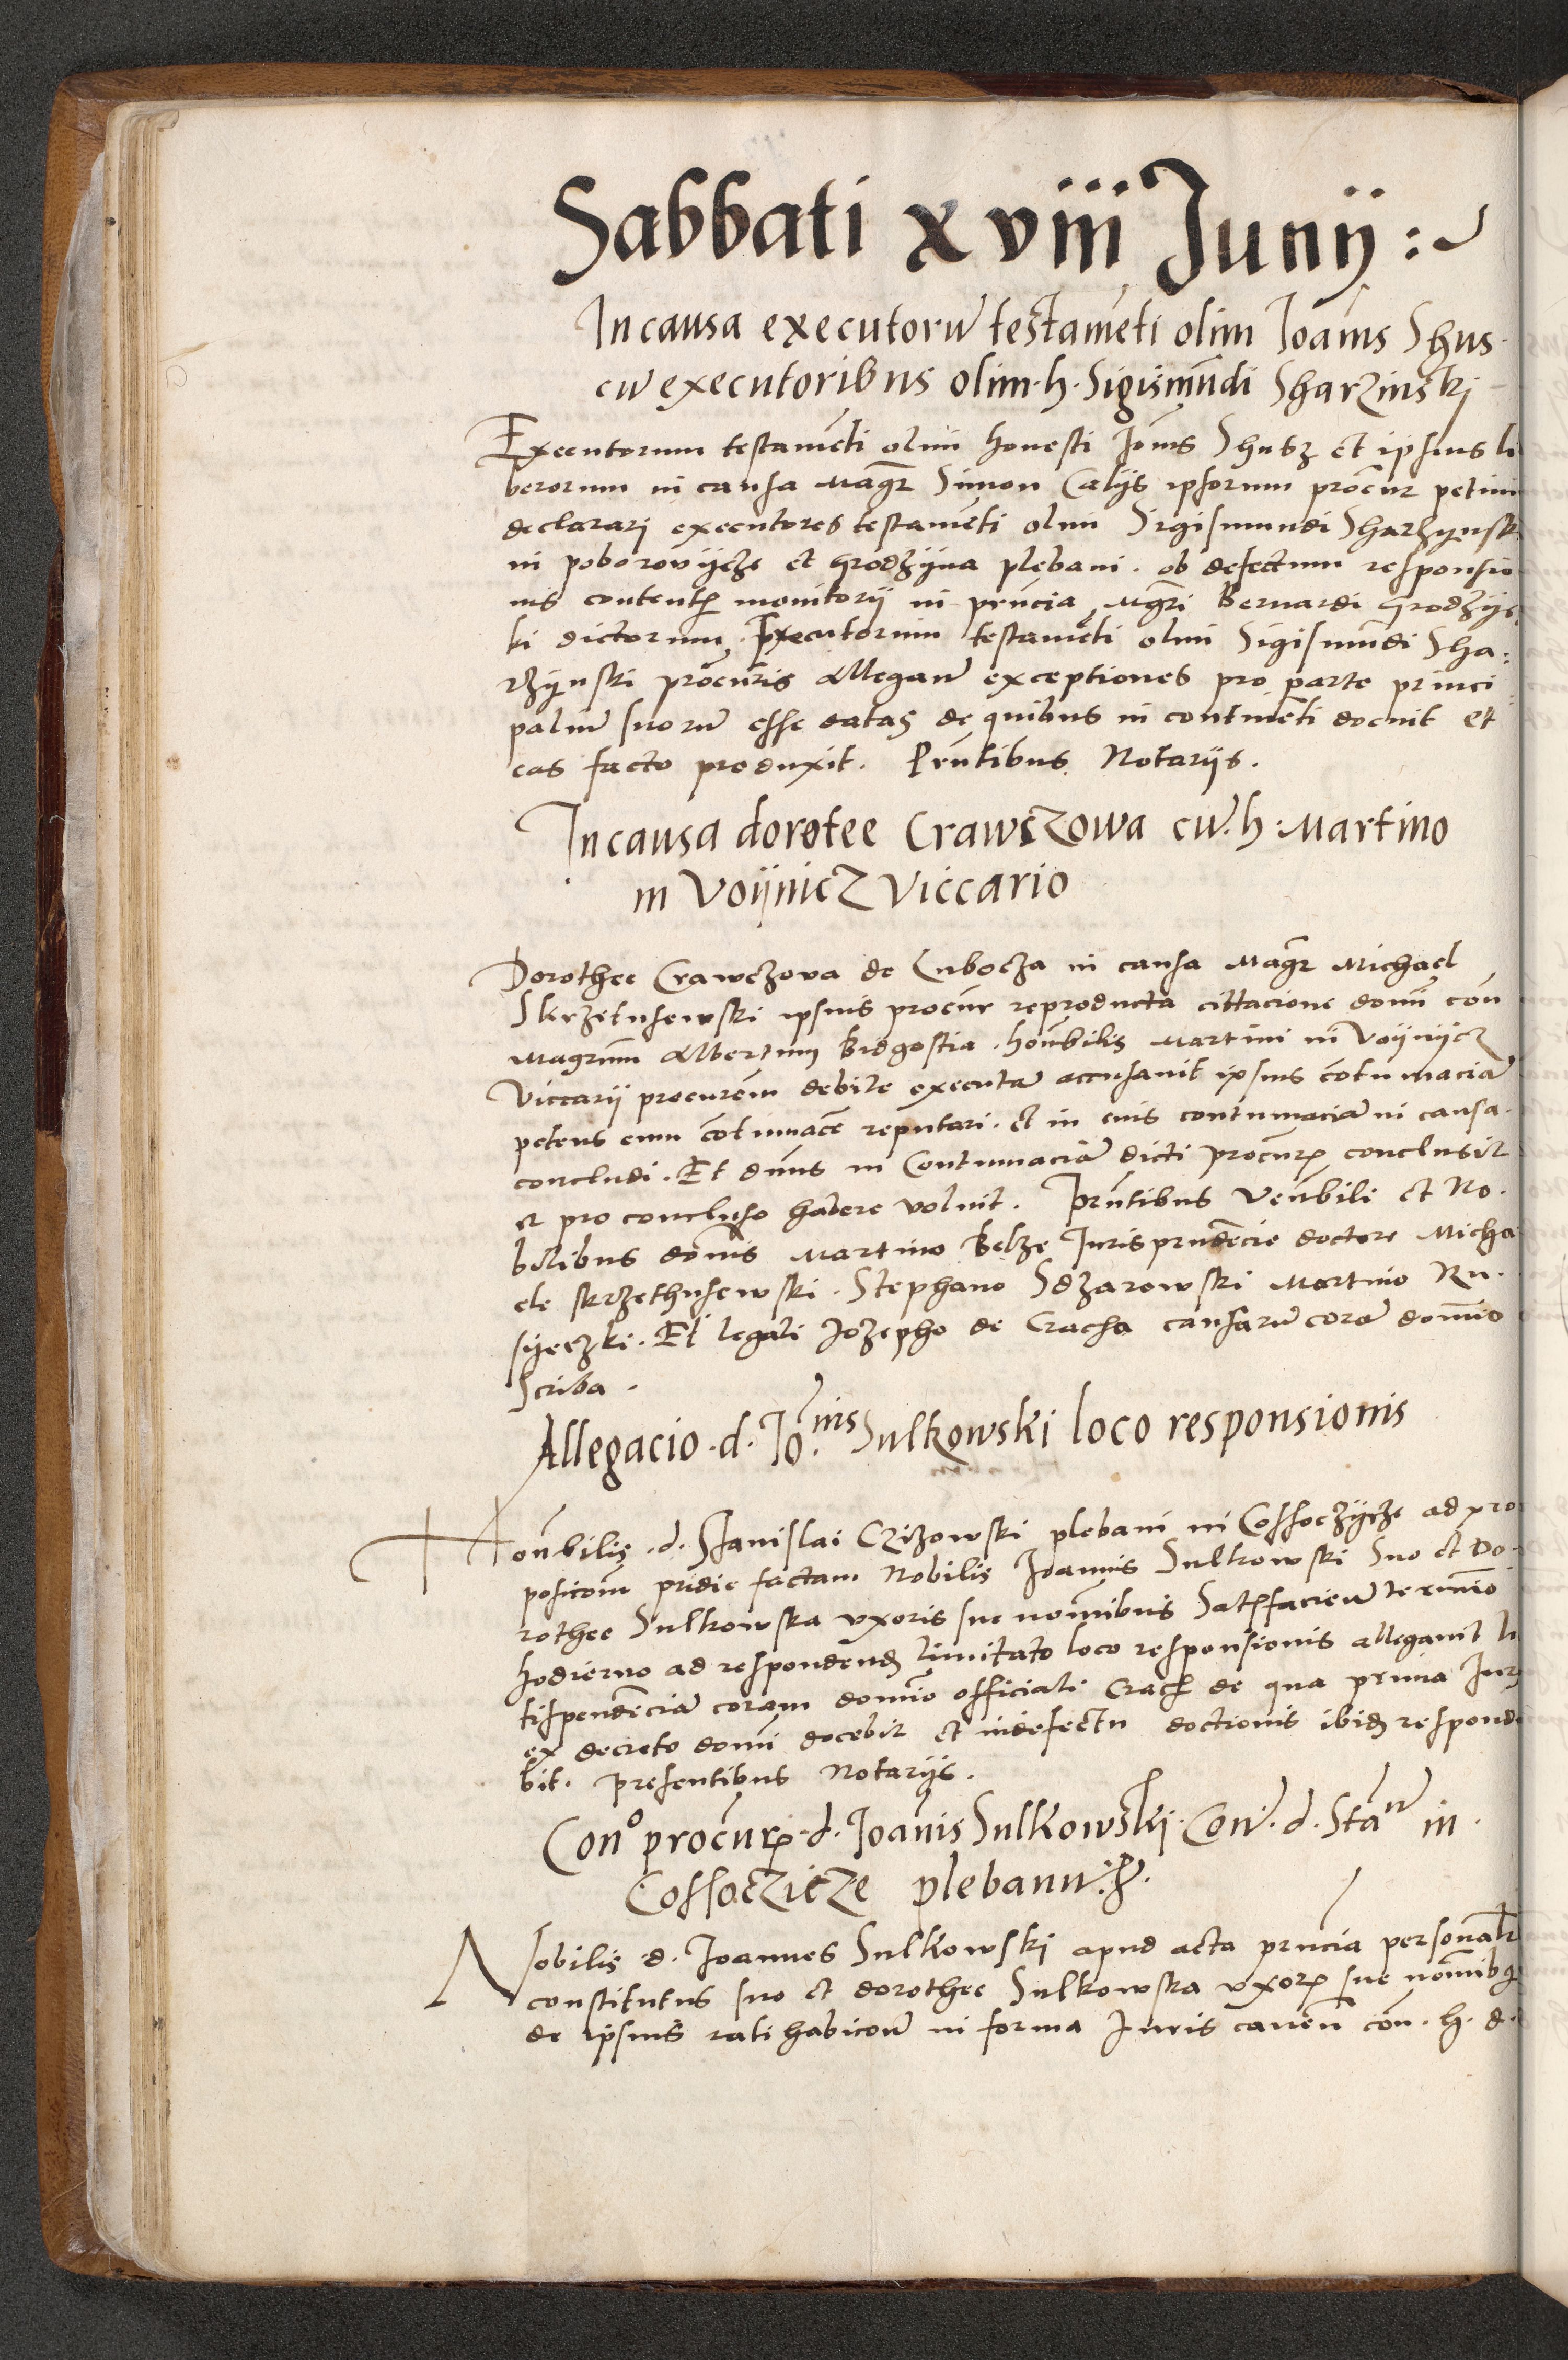 Sabbati xviii Junij :~
In causa executorũ testamẽti olim Ioañis Shus.
cũ executoribus olim. h. Sigismũdi Sharzinskj
Executorum testamẽti olim honesti Joñis Shusz et ipsius li
berorum in causa Magr̃ Simon Calijs ipsorum procur̃ petiuit
declararj executores testamẽti olim Sigismundi Sharzynsk
in poborovycze et Grodzyna plebani. ob defectum responsio
nis content̃ monitorij in pr̃ncia Mgr̃i Bernardi Grodzijs
ki dictorum Executorum testamẽti olim Sigismũdi Sha:
rzynski procur̃is Allegaũ exceptiones pro parte princi
paliũ suorũ esse datas de quibus in continẽti docuit et
eas facto produxit. Pr̃ntibus Notarijs.
In causa dorotee CrawcZowa cũ. h. Martino
in VoijnicZ Viccario
Dorothee Crawczova de Lubocza in causa Magr̃ Michael
Skrzetusewski ipsius procur̃ reproducta cittacione dom̃i con̄
Magrũm Albertum Bidgostia. hoñbilis Martini in VoijnijcZ
Viccarij procurem̃ debite executã accusauit ipsius cõtumaciã
petens eum cõtumacẽ reputari. et in eius contumaciã in causa.
concludi. Et dñus in Contumaciã dicti procur̃ conclusit
et pro concluso habere voluit. Pr̃ntibus Veñbili et No.
bilibus dom̃is Martino Belze Jurisprudẽcie doctore Micha
ele skrzethusewski. Stephano Sdzarowski Martino Ru.
syeczki. Et legali Jozepho de Cracha causarũ corã domĩo
scriba.
Allegacio. d. Jo.nis Sulkowski loco responsionis
Hoñbilis. d. Stanislai Czizowski plebani in Cossoczijcze ad pro
posicom̃ pridie factam Nobilis Joannis Sulkowski suo et Do-
rothee Sulkowska vxoris sue nom̃ibus Satisfacieñ termĩo
hodierno ad respondend̃ limitato loco responsionis allegauit li
tispendẽciã coram domĩo officiali Crach̃ de qua prima Jur̃
ex decreto domĩ docebit et in defectu doctionis ibid̃ responde
bit. presentibus Notarijs.
Cono procur̃ d. Joañis Sulkowski. Coñ. d. Stañ in.
CossoczicZe plebanũ.
Nobilis d. Joannes Sulkowski apud acta pr̃ncia personalr̃
constitutus suo et dorothee Sulkowska vxor̃ sue nom̃ibq
de ipsius rati habicoñ in forma Juris caueñ coñ. h. d.